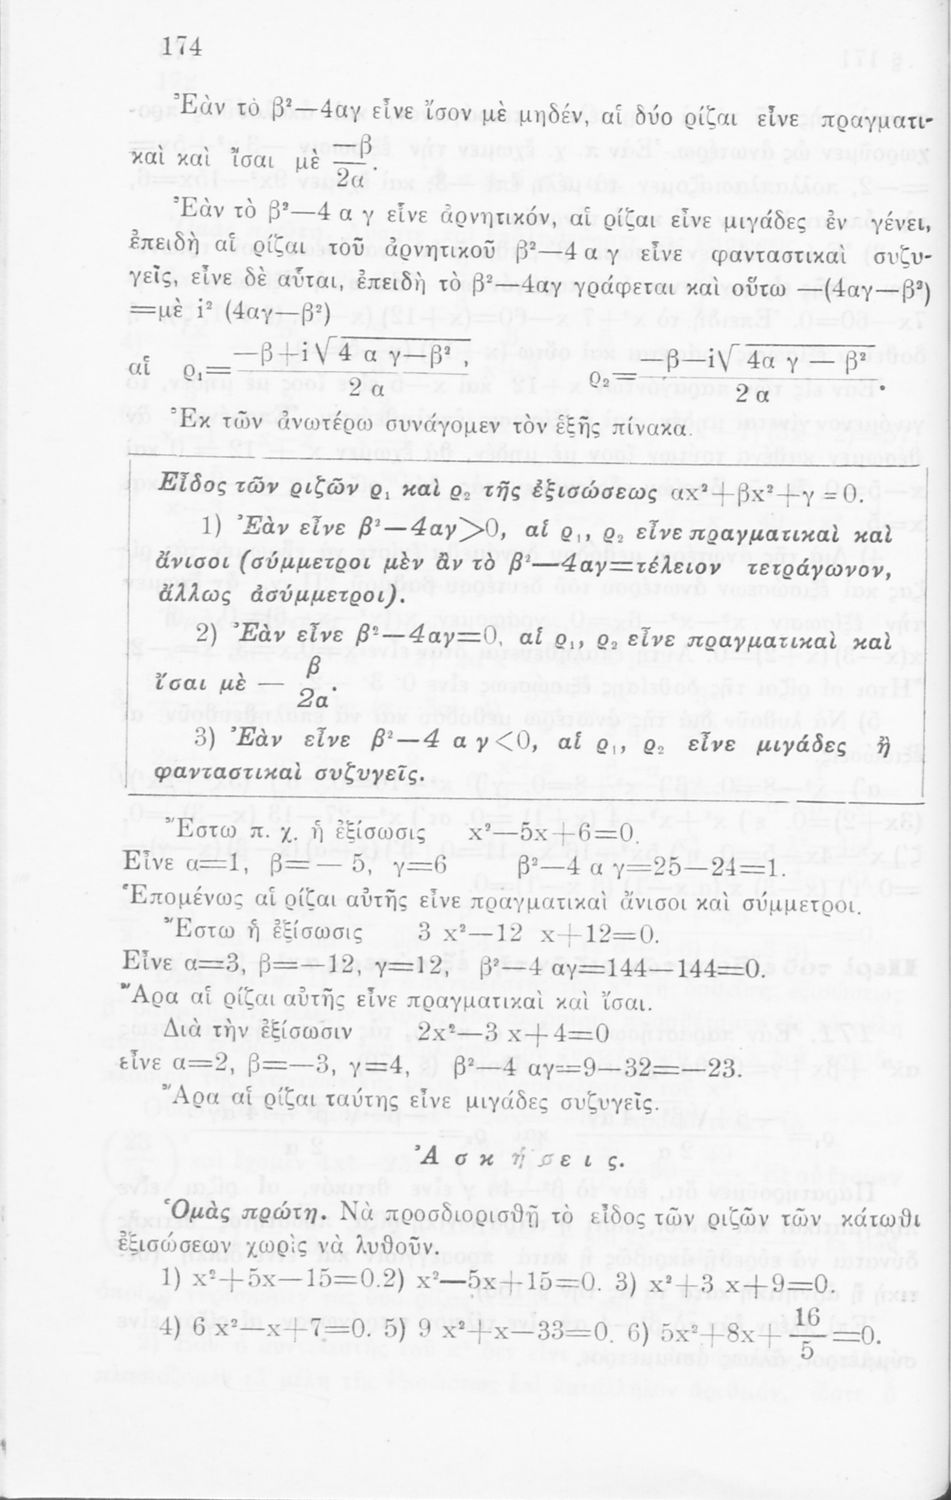 174
Ἐὰν τὸ β²—4αγ εἶνε ἴσον μὲ μηδέν, αἱ δύο ρίζαι εἶνε πραγματι-
καὶ καὶ ἴσαι μὲ —β/2α.
Ἐὰν τὸ β²—4 α γ εἶνε ἀρνητικόν, αἱ ρίζαι εἶνε μιγάδες ἐν γένει,
ἐπειδὴ αἱ ρίζαι τοῦ ἀρνητικοῦ β²—4 α γ εἶνε φανταστικαὶ συζυ-
γεῖς, εἶνε δὲ αὗται, ἐπειδὴ τὸ β²—4αγ γράφεται καὶ οὕτω —(4αγ—β²)
=μὲ i² (4αγ—β²)
αἱ ρ₁= (—β+i√4 α γ—β²)/2 α, ρ₂= (—β—i√4α γ — β²)/2 α.
Ἐκ τῶν ἀνωτέρω συνάγομεν τὸν ἑξῆς πίνακα.
Εἶδος τῶν ριζῶν ρ₁ καὶ ρ₂ τῆς ἐξισώσεως αx²+βx²+γ=0.
1) Ἐὰν εἶνε β²—4αγ>0, αἱ ρ₁, ρ₂ εἶνε πραγματικαὶ καὶ
ἄνισοι (σύμμετροι μὲν ἂν τὸ β²—4αγ=τέλειον τετράγωνον,
ἄλλως ἀσύμμετροι).
2) Ἐὰν εἶνε β²—4αγ=0, αἱ ρ₁, ρ₂ εἶνε πραγματικαὶ καὶ
ἴσαι μὲ — β/2α.
3) Ἐὰν εἶνε β²—4 α γ<0, αἱ ρ₁, ρ₂ εἶνε μιγάδες ἢ
φανταστικαὶ συζυγεῖς.
Ἔστω π. χ. ἡ ἐξίσωσις x²—5x+6=0.
Εἶνε α=1, β= — 5, γ=6 β²—4 α γ=25—24=1.
Ἑπομένως αἱ ρίζαι αὐτῆς εἶνε πραγματικαὶ ἄνισοι καὶ σύμμετροι.
Ἔστω ἡ ἐξίσωσις 3 x²—12 x+12=0.
Εἶνε α=3, β=—12, γ=12, β²—4 αγ=144—144=0.
Ἄρα αἱ ρίζαι αὐτῆς εἶνε πραγματικαὶ καὶ ἴσαι.
Διὰ τὴν ἐξίσωσιν 2x²—3 x+4=0
εἶνε α=2, β=—3, γ=4, β²—4 αγ=9—32=—23.
Ἄρα αἱ ρίζαι ταύτης εἶνε μιγάδες συζυγεῖς.
Ἀσκήσεις.
Ὁμὰς πρώτη. Νὰ προσδιορισθῇ τὸ εἶδος τῶν ριζῶν τῶν κάτωθι
ἐξισώσεων χωρὶς νὰ λυθοῦν.
1) x²+5x—15=0. 2) x²—5x+15=0. 3) x²+3 x+9=0.
4) 6 x²—x+7=0. 5) 9 x²+x—33=0. 6) 5x²+8x+16/5=0.